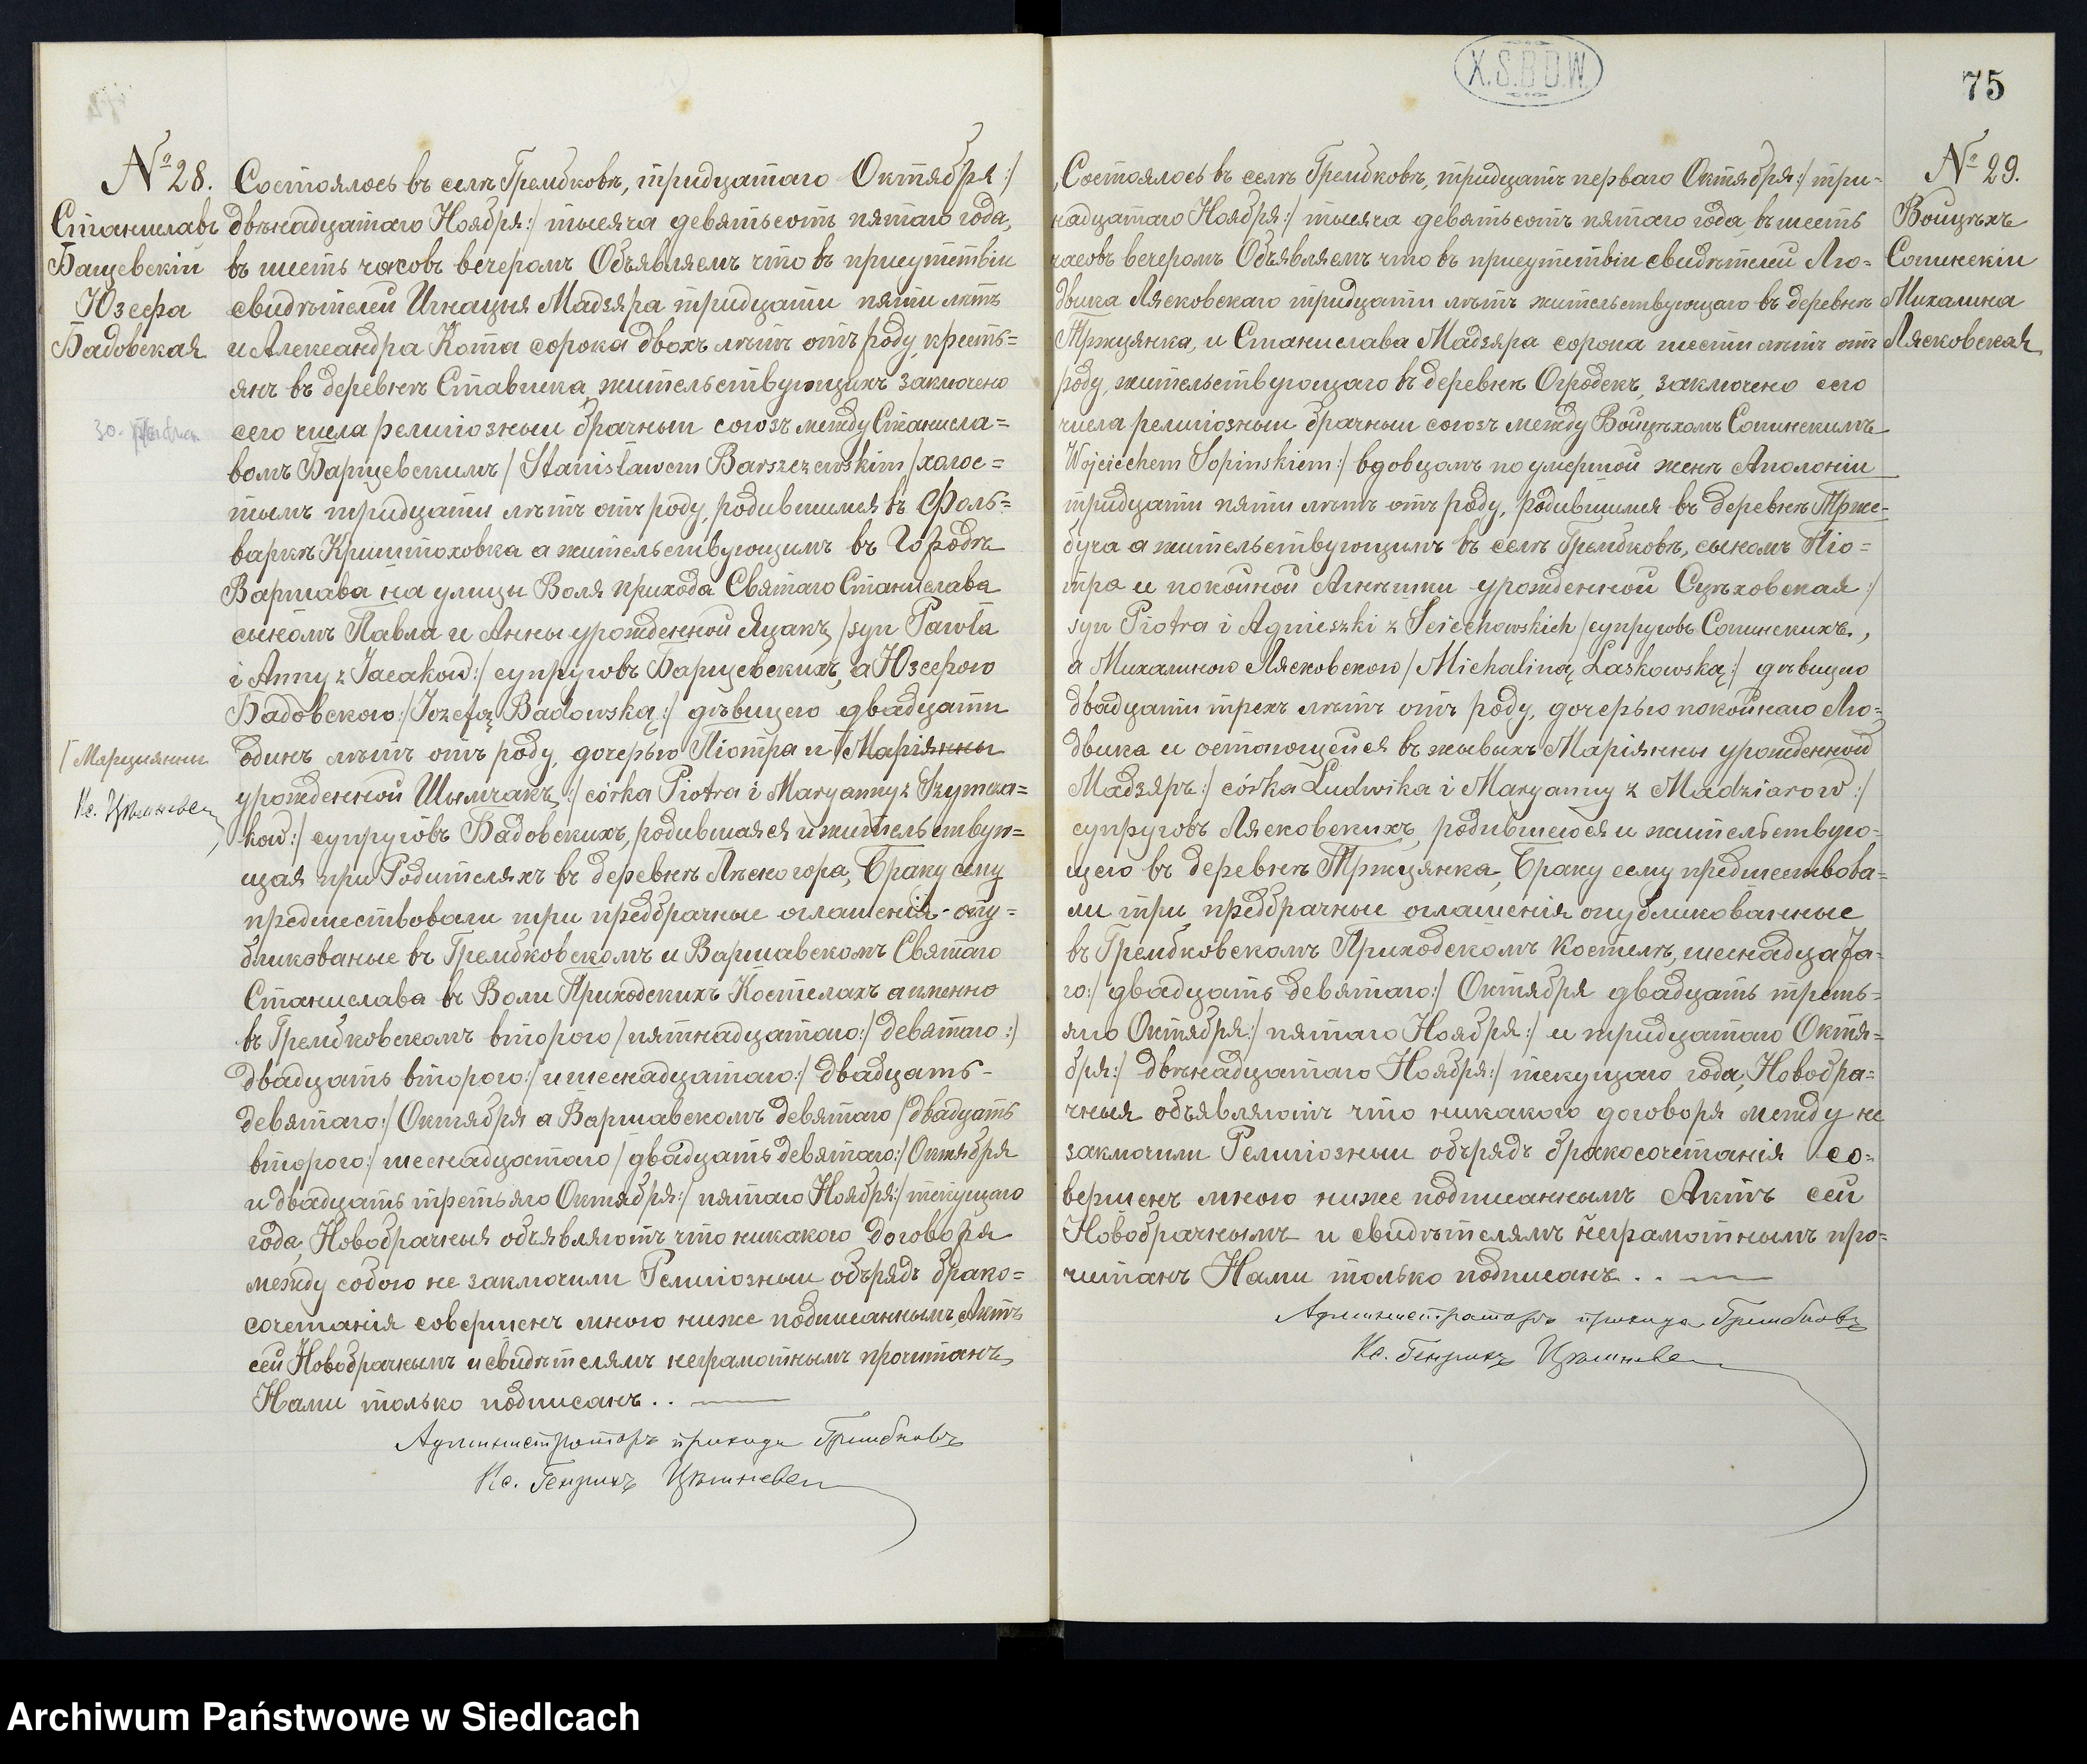 № 28.
Станиславъ
Бащевскій
Юзефа
Бадовская
Состоялось въ селѣ Грембковѣ, тридцатаго Октября :/
двѣнадцатаго Ноября :/ тысяча девятьсотъ пятаго года,
въ шесть часовъ вечеромъ Объявляемъ что въ присутствіи
свидѣтелей Игнація Мадзяра тридцати пяти лѣтъ
и Александра Кота сорока двохъ лѣтъ отъ роду, кресть=
янъ въ деревнѣ Стависка, жительствующихъ заключено
сего числа религіозный брачный союзъ между Станисла=
вомъ Барщевскимъ / Stanisławem Barszczewskim / холос=
тымъ тридцати лѣтъ отъ роду, родившимся въ Фоль=
варкѣ Криштоховка а жительствующимъ въ Городѣ
Варшава на улицы Воля прихода Святаго Станислава
сыномъ Павла и Анны урожденной Яцакъ, / syn Pawła
i Anny z Jacaków :/ супруговъ Барщевскихъ, а Юзефою
Бадовскою :/ Jozefą Badowską :/ дѣвицею двадцати
[ Марцианны
Кс.
одинъ лѣтъ отъ роду, дочерью Піотра и [ Маріянны
урожденной Шымчакъ, :/ córka Piotra i Maryanny z Szymcza=
ków :/ супруговъ Бадовскихъ, родившаяся и жительствую=
щая при Родителяхъ въ деревнѣ Лысогора, Браку сему
предшествовали три предбрачные оглашенія опу=
бликованые въ Грембковскомъ и Варшавскомъ Святаго
Станислава въ Воли Приходскихъ Костелахъ а именно
въ Грембковскомъ второго / пятнадцатаго :/ девятаго :/
двадцать второго :/ и шеснадцатаго :/ двадцать
девятаго :/ Октября а Варшавскомъ девятаго / двадцать
второго :/ шеснадцатаго / двадцать девятаго :/ Октября
и двадцать третьяго Октября :/ пятаго Ноября :/ текущаго
года, Новобрачныя объявляютъ что никакого договоря
между собою не заключили Религіозный обърядъ брако=
сочетанія совершенъ мною ниже подписаннымъ, Актъ
сей Новобрачнымъ и свидѣтелямъ неграмотнымъ прочитанъ,
Нами только подписанъ . .
Администраторъ прихода Грембковъ
Кс. Генрихъ
X.S.B.D.W.
75
№ 29.
Войцѣхъ
Сопинскій
Михалина
Лясковская
Состоялось въ селѣ Грембковѣ, тридцать перваго Октября :/ три=
надцатаго Ноября :/ тысяча девятьсотъ пятаго года, въ шесть
часовъ вечеромъ Объявляемъ что въ присутствіи свидѣтелей Лю=
двика Лясковскаго тридцати лѣтъ жительствующаго въ деревнѣ
Тржцянка, и Станислава Мадзяра сорока шести лѣтъ отъ
роду, жительствующаго въ деревнѣ Огродекъ, заключено сего
числа религіозный брачный союзъ между Войцѣхомъ Сопинскимъ
Wojciechem Sopinskiem :/ вдовцомъ по умершой женѣ Аполоніи
тридцати пяти лѣтъ отъ роду, родившимся въ деревнѣ Трже=
буча а жительствующимъ въ селѣ Грембковѣ, сыномъ Піо=
тра и покойной Агнѣшки урожденной Сцѣховская :/
syn Piotra i Agnieszki z Sciechowskich / супруговъ Сопинскихъ.,
а Михалиною Лясковскою / Michaliną Laskowską :/ дѣвицею
двадцати трехъ лѣтъ отъ роду, дочерью покойнаго Лю=
двика и остающейся въ жывыхъ Маріянны урожденной
Мадзяръ :/ córka Ludwika i Maryanny z Madziarow :/
супруговъ Лясковскихъ, родившеюся и жительствую=
щею въ деревнѣ Тржцянка, Браку сему предшествова=
ли три предбрачные оглашенія опубликованные
въ Грембковскомъ Приходскомъ Костелѣ, шеснадцата=
го :/ двадцать девятаго :/ Октября двадцать треть=
яго Октября :/ пятаго Ноября :/ и тридцатаго Октя=
бря :/ двѣнадцатаго Ноября :/ текущаго года, Новобра=
чныя объявляютъ что никакого договоря между не
заключили Религіозный обърядъ бракосочетанія со=
вершенъ мною ниже подписаннымъ Актъ сей
Новобрачнымъ и свидѣтелямъ неграмотнымъ про=
читанъ Нами только подписанъ . .
Администраторъ прихода Грембковъ
Кс. Генрихъ
Archiwum Państwowe w Siedlcach